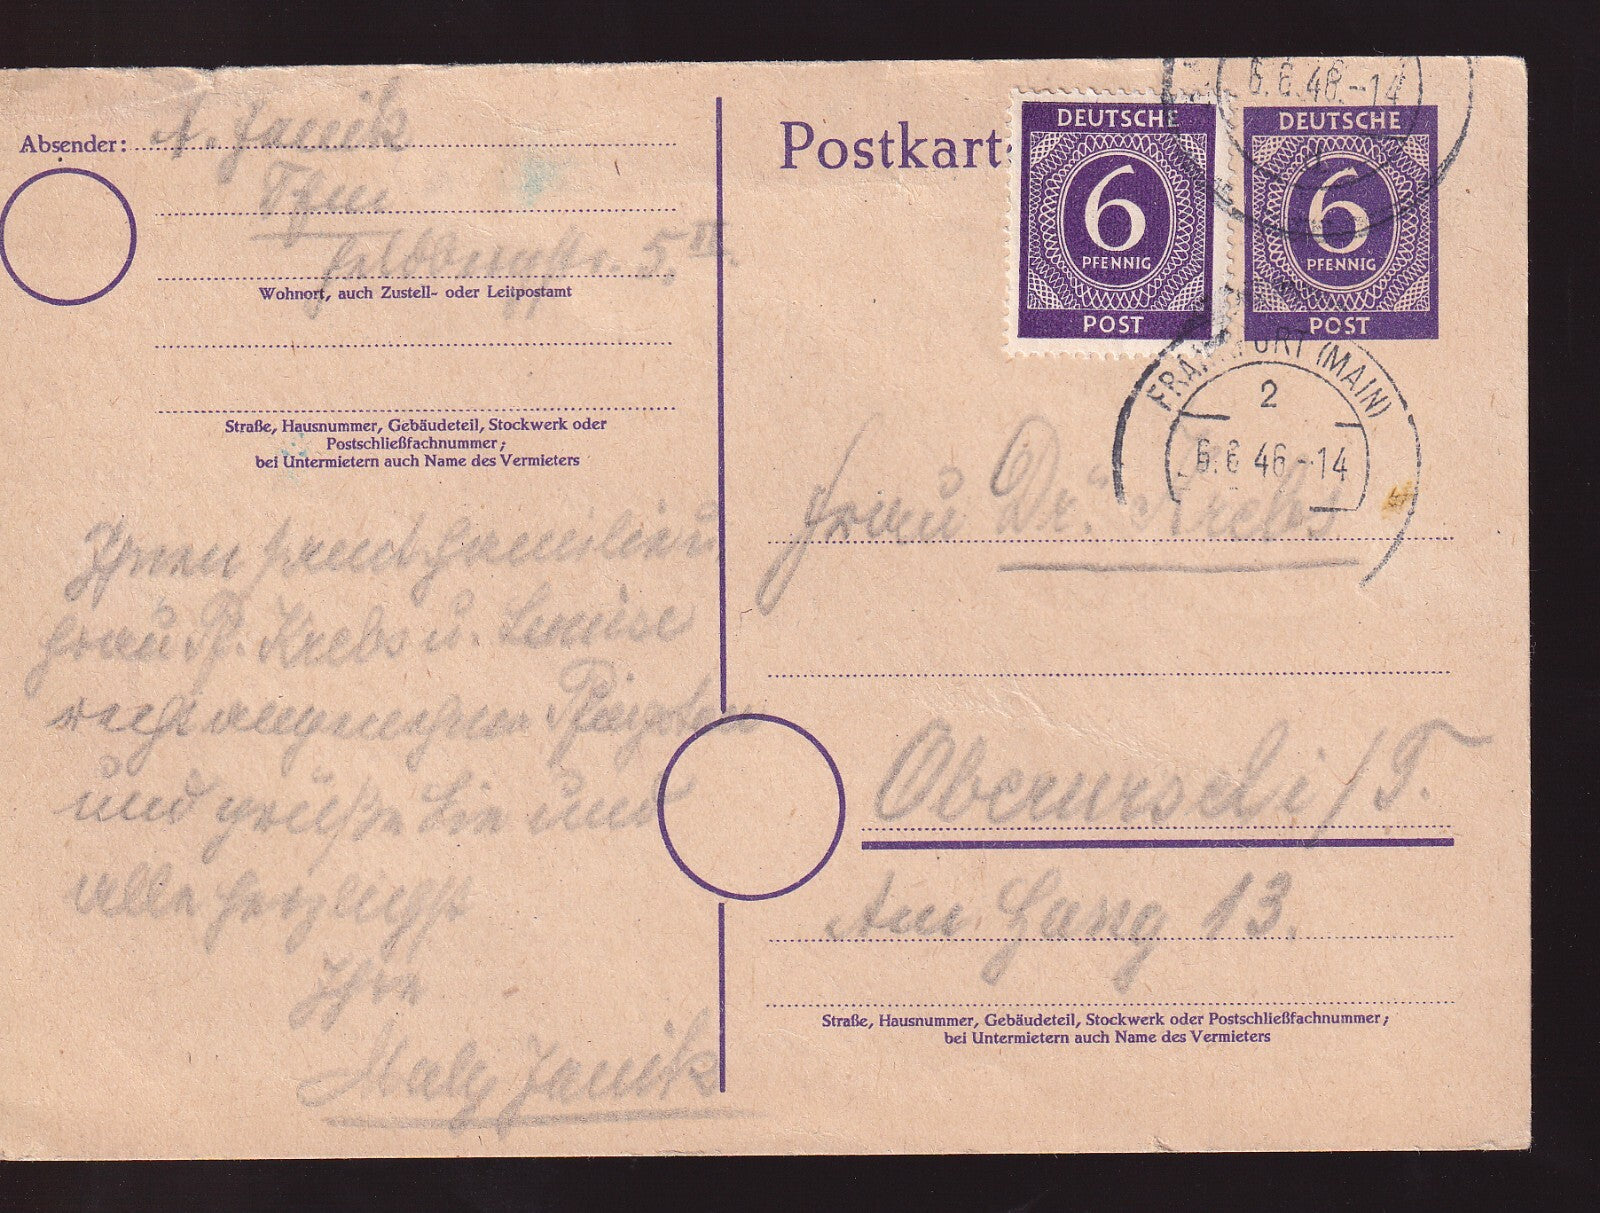 Absender: A. Janik
Ffm.
Feldbergstr. 5 II.
Wohnort, auch Zustell- oder Leitpostamt
Straße, Hausnummer, Gebäudeteil, Stockwerk oder
Postschließfachnummer;
bei Untermietern auch Name des Vermieters
Ihnen samt Familie u.
Frau Pf. Krebs u. Louise
recht angenehme Pfingsten
und grüße Sie und
alle herzlichst
Ihre
Maly Janik
Postkart
DEUTSCHE
6
PFENNIG
POST
6.6.46.-14
DEUTSCHE
6
PFENNIG
POST
FRANKFURT (MAIN)
2
6.6 46.-14
Frau Dr. Krebs
Oberursel i/T.
Am Hang 13.
Straße, Hausnummer, Gebäudeteil, Stockwerk oder Postschließfachnummer;
bei Untermietern auch Name des Vermieters